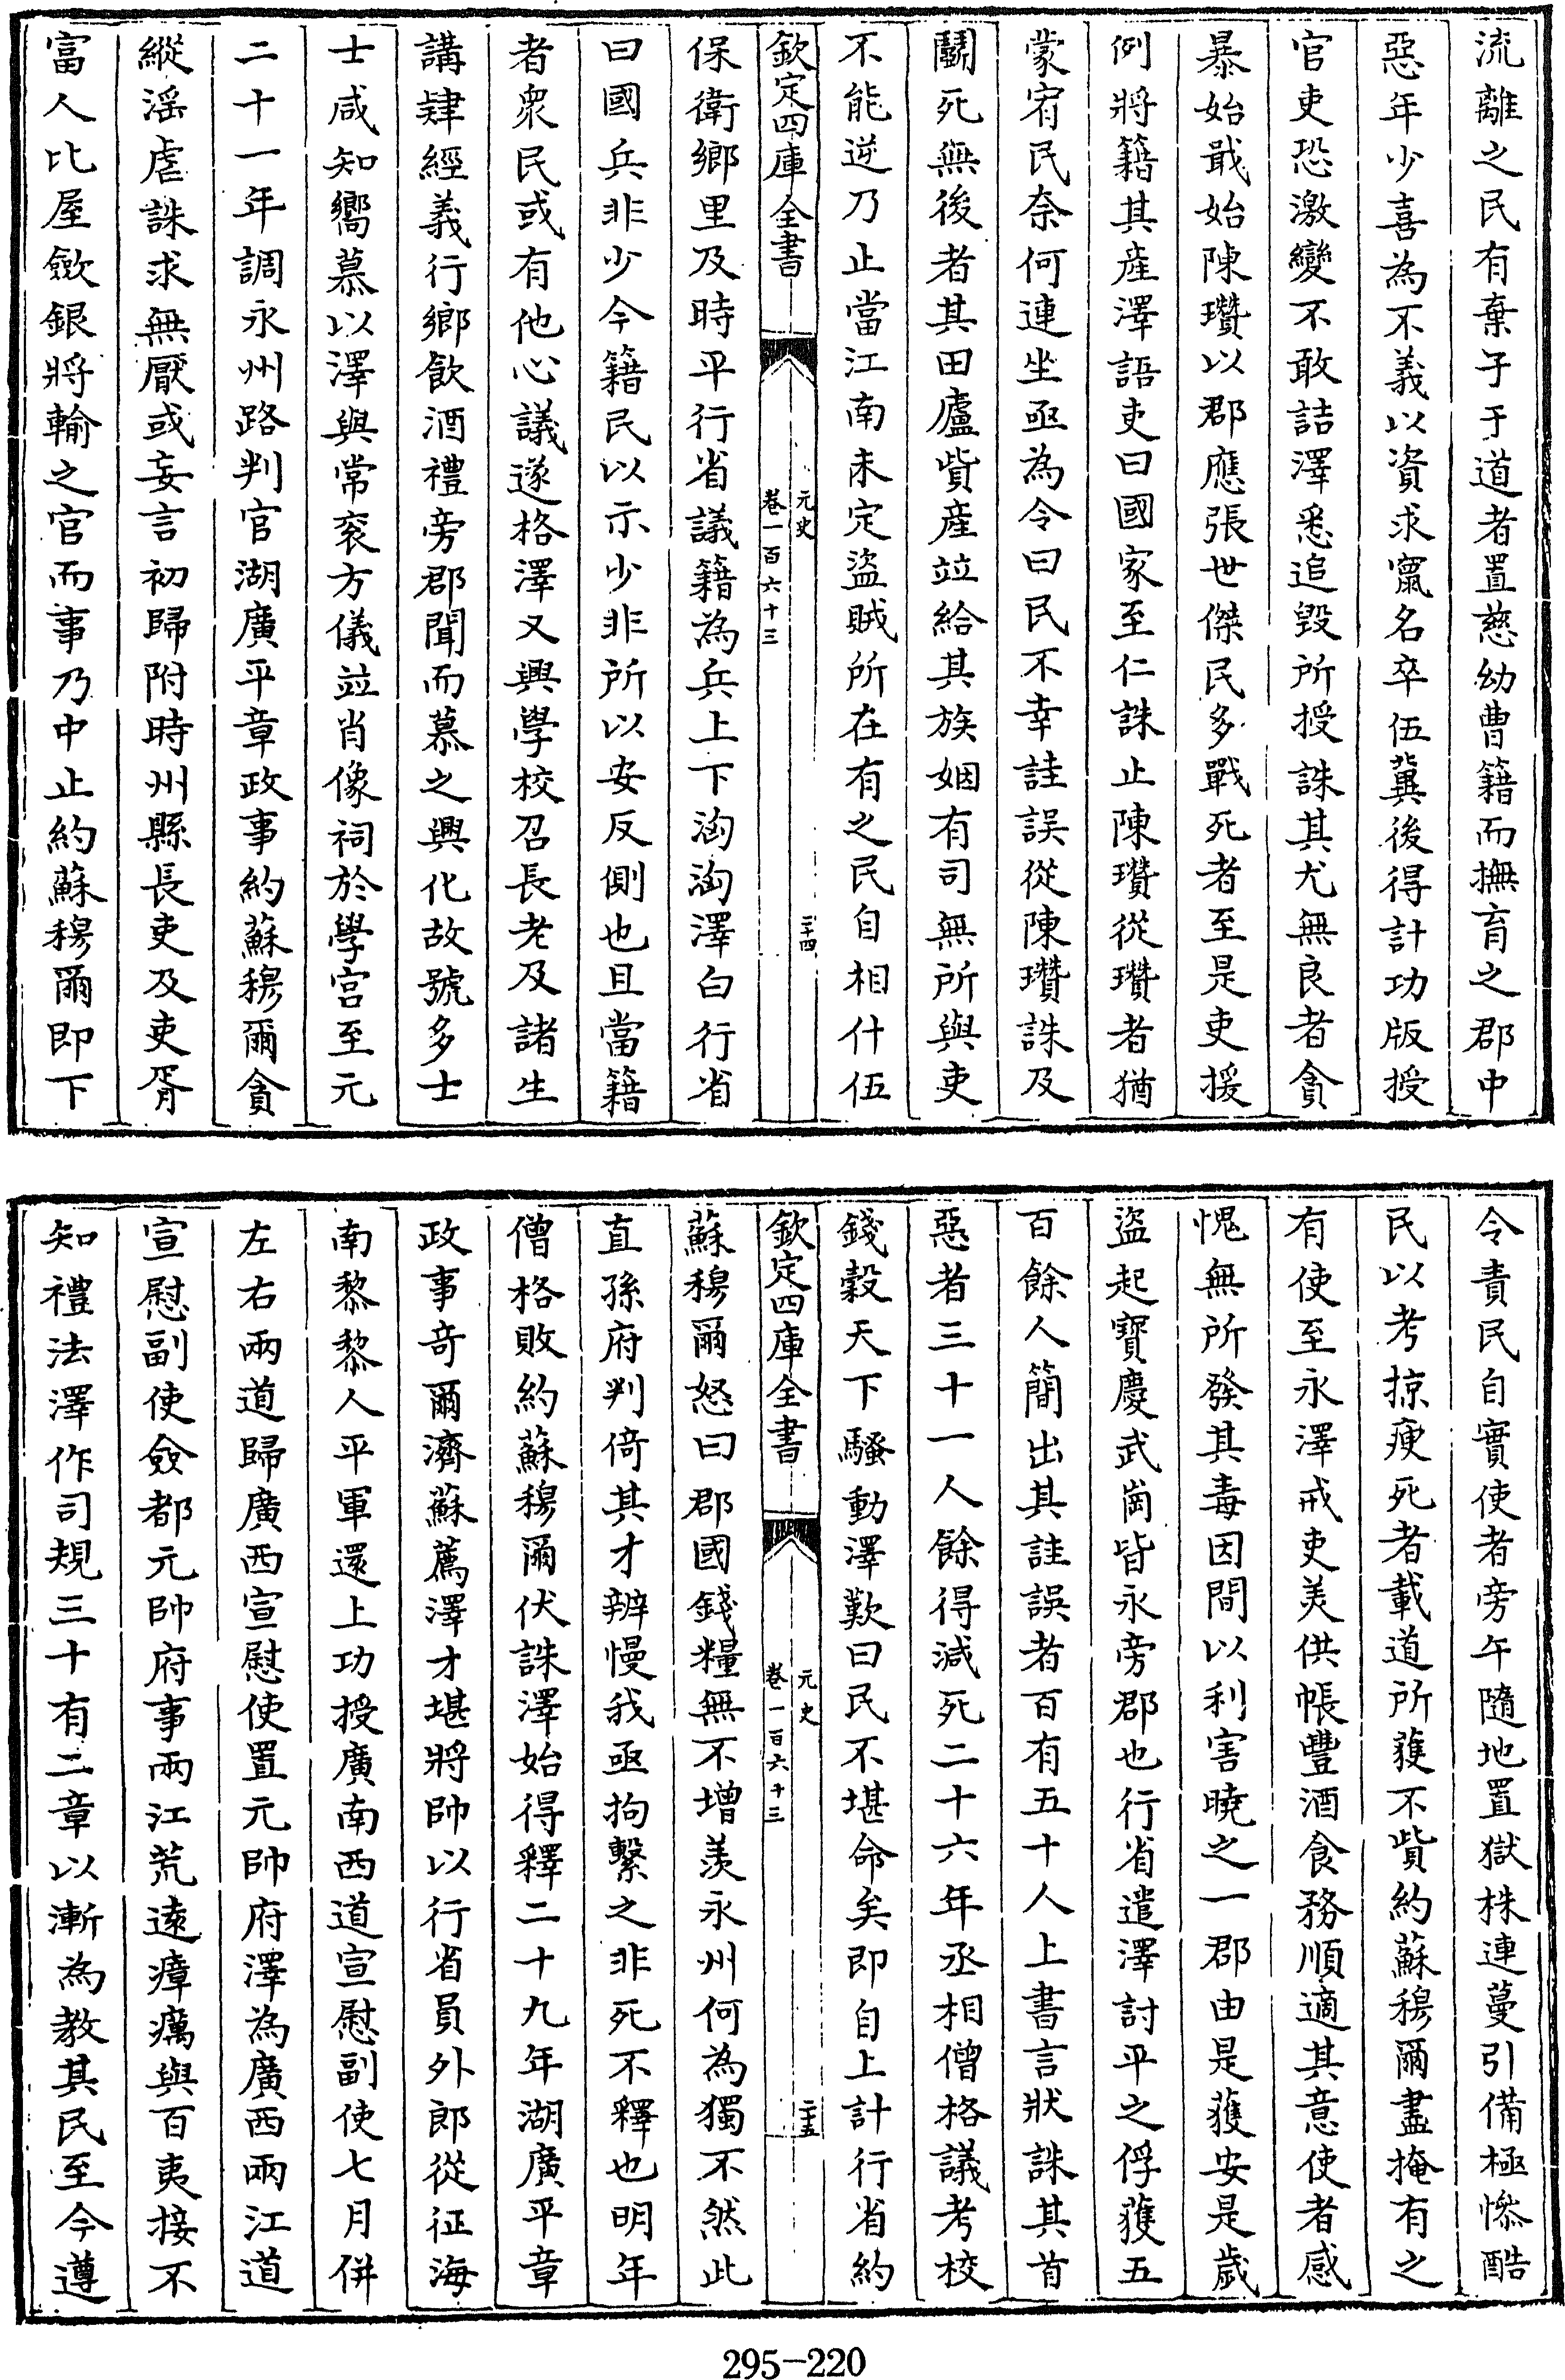 流離之民有棄子于道者置慈幼曹籍而撫育之郡中
惡年少喜為不義以資求竄名卒伍冀後得計功版授
官吏恐激變不敢詰澤悉追毀所授誅其尤無良者貪
暴始戢始陳瓚以郡應張世傑民多戰死者至是吏援
例將籍其產澤語吏曰國家至仁誅止陳瓚從瓚者猶
蒙宥民奈何連坐亟為令曰民不幸詿誤從陳瓚誅及
鬭死無後者其田廬貲產竝給其族姻有司無所與吏
不能逆乃止當江南未定盜賊所在有之民自相什伍
欽定四庫全書
元史
卷一百六十三
二十四
保衛鄉里及時平行省議籍為兵上下洶洶澤白行省
曰國兵非少今籍民以示少非所以安反側也且當籍
者衆民或有他心議遂格澤又興學校召長老及諸生
講肄經義行鄉飲酒禮旁郡聞而慕之興化故號多士
士咸知嚮慕以澤與常袞方儀竝肖像祠於學宫至元
二十一年調永州路判官湖廣平章政事約蘇穆爾貪
縱淫虐誅求無厭或妄言初歸附時州縣長吏及吏胥
富人比屋斂銀將輸之官而事乃中止約蘇穆爾即下
令責民自實使者旁午隨地置獄株連蔓引備極慘酷
民以考掠瘐死者載道所獲不貲約蘇穆爾盡掩有之
有使至永澤戒吏美供帳豐酒食務順適其意使者感
愧無所發其毒因間以利害曉之一郡由是獲安是歲
盜起寶慶武岡皆永旁郡也行省遣澤討平之俘獲五
百餘人簡出其詿誤者百有五十人上書言狀誅其首
惡者三十一人餘得減死二十六年丞相僧格議考校
錢穀天下騷動澤歎曰民不堪命矣即自上計行省約
欽定四庫全書
元史
卷一百六十三
二十五
蘇穆爾怒曰郡國錢糧無不增羡永州何為獨不然此
直孫府判倚其才辨慢我亟拘繫之非死不釋也明年
僧格敗約蘇穆爾伏誅澤始得釋二十九年湖廣平章
政事奇爾濟蘇薦澤才堪將帥以行省員外郎從征海
南黎黎人平軍還上功授廣南西道宣慰副使七月併
左右兩道歸廣西宣慰使置元帥府澤為廣西兩江道
宣慰副使僉都元帥府事兩江荒遠瘴癘與百夷接不
知禮法澤作司規三十有二章以漸為教其民至今遵
295-220